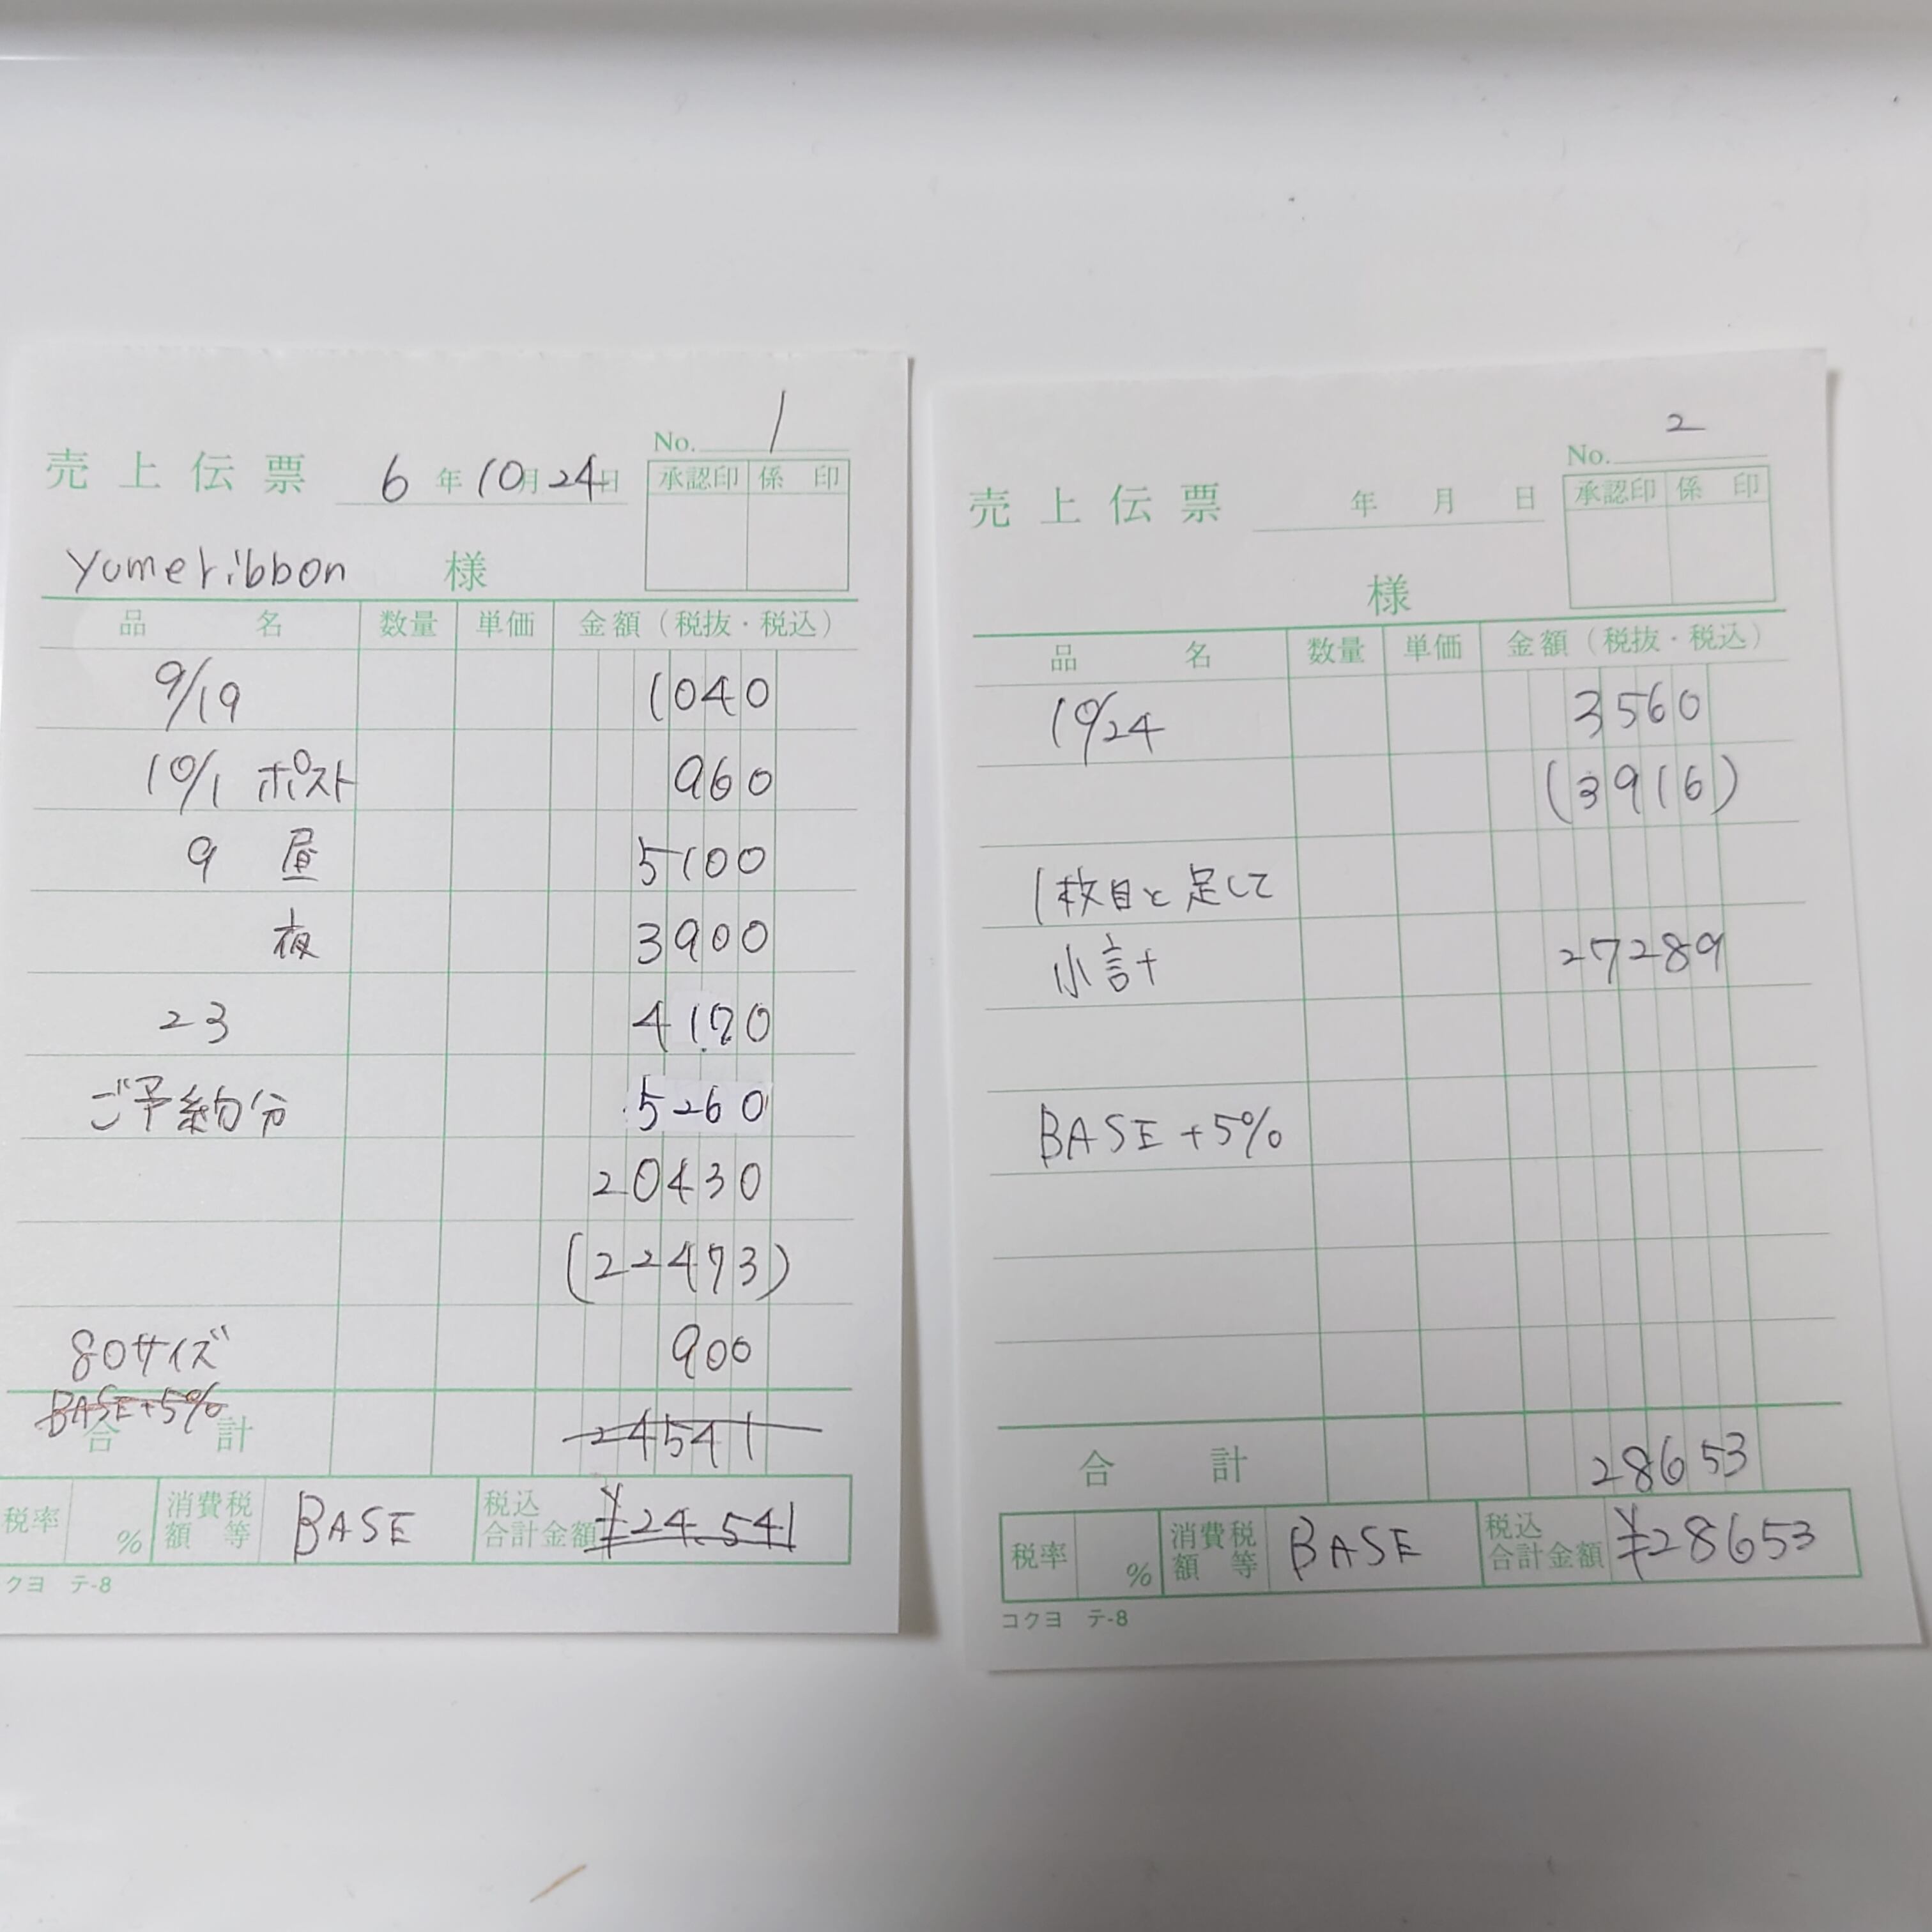 No. 1
売上伝票 6年10月24日
承認印 係印
yumeribbon 様
品名 数量 単価 金額（税抜・税込）
9/19 1040
10/1 ポスト 960
9 昼 5100
夜 3900
23 4170
ご予約分 5260
20430
(22473)
80サイズ 900
BASE+5%
合計 24541
税率 % 消費税額等 BASE 税込合計金額 ¥24.541
クヨ テ-8
No. 2
売上伝票 年 月 日
承認印 係印
様
品名 数量 単価 金額（税抜・税込）
10/24 3560
(3916)
1枚目と足して
小計 27289
BASE+5%
合計 28653
税率 % 消費税額等 BASE 税込合計金額 ¥28653
コクヨ テ-8